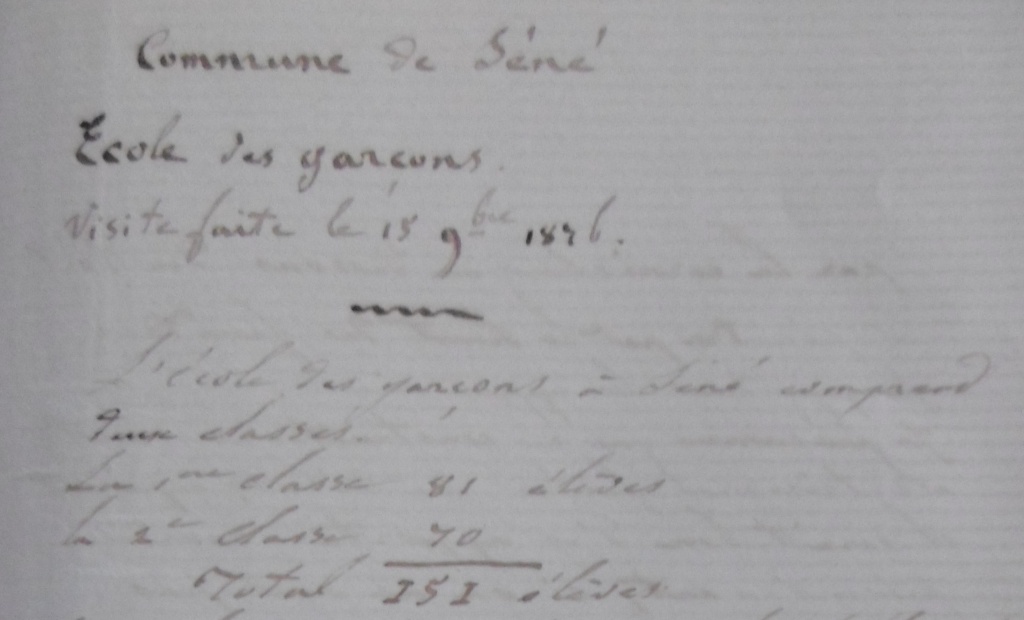 Commune de Séné
Ecole des garçons.
Visite faite le 15 9bre 1876.
L'école des garçons à Séné comprend
deux classes.
La 1ere classe 81 élèves
la 2e classe 70
Total 151 élèves